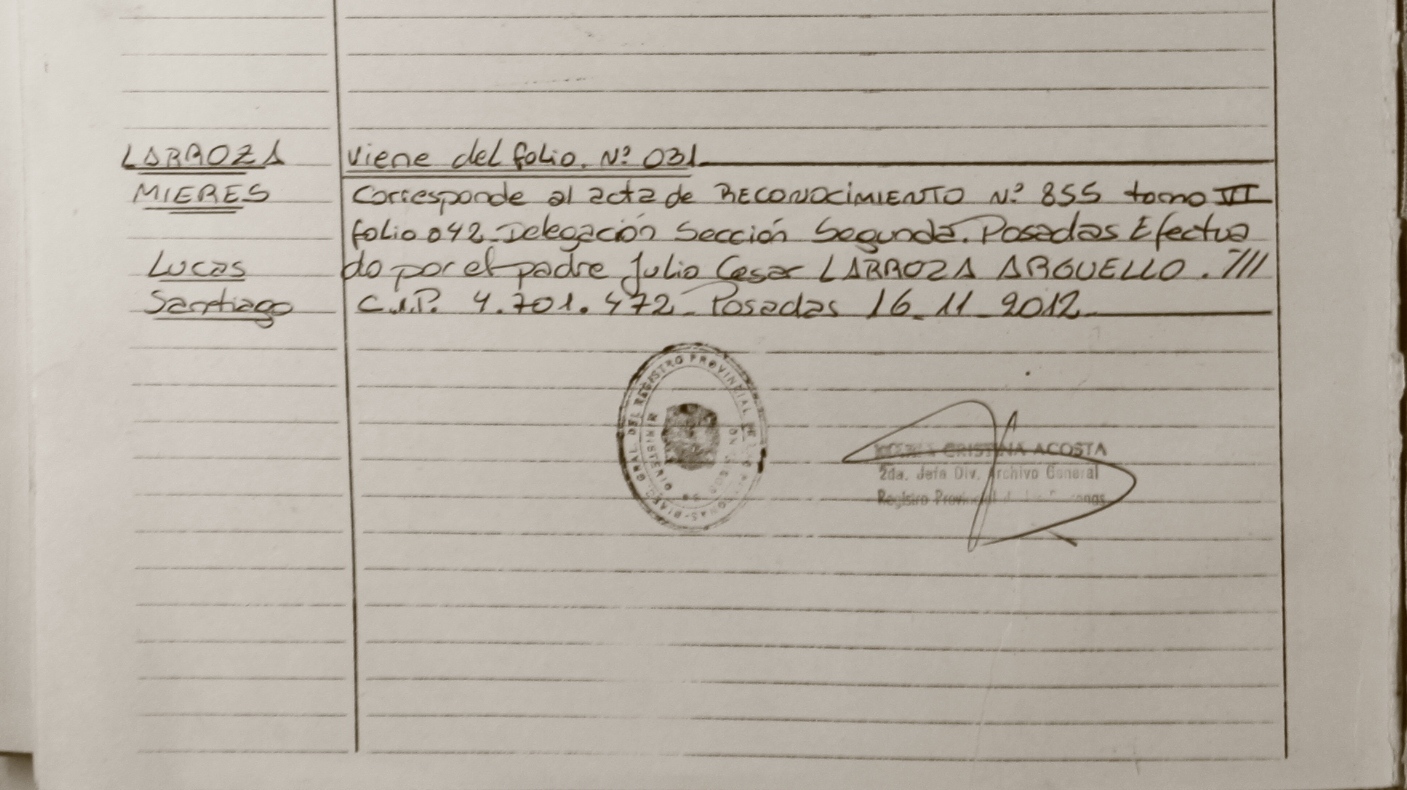 LARROZA
MIERES
Lucas
Santiago
Viene del folio. Nº 031
Corresponde al acta de RECONOCIMIENTO Nº 855 tomo VI
folio 042_Delegación Sección Segunda. Posadas Efectua
do por el padre Julio Cesar LARROZA ARGUELLO. ///
C.I.P. 4.701.472_Posadas 16_11_2012
GRAL. DEL REGISTRO PROVINCIAL DE
CRISTINA ACOSTA
2da. Jefa Div. Archivo General
Registro Provincial de